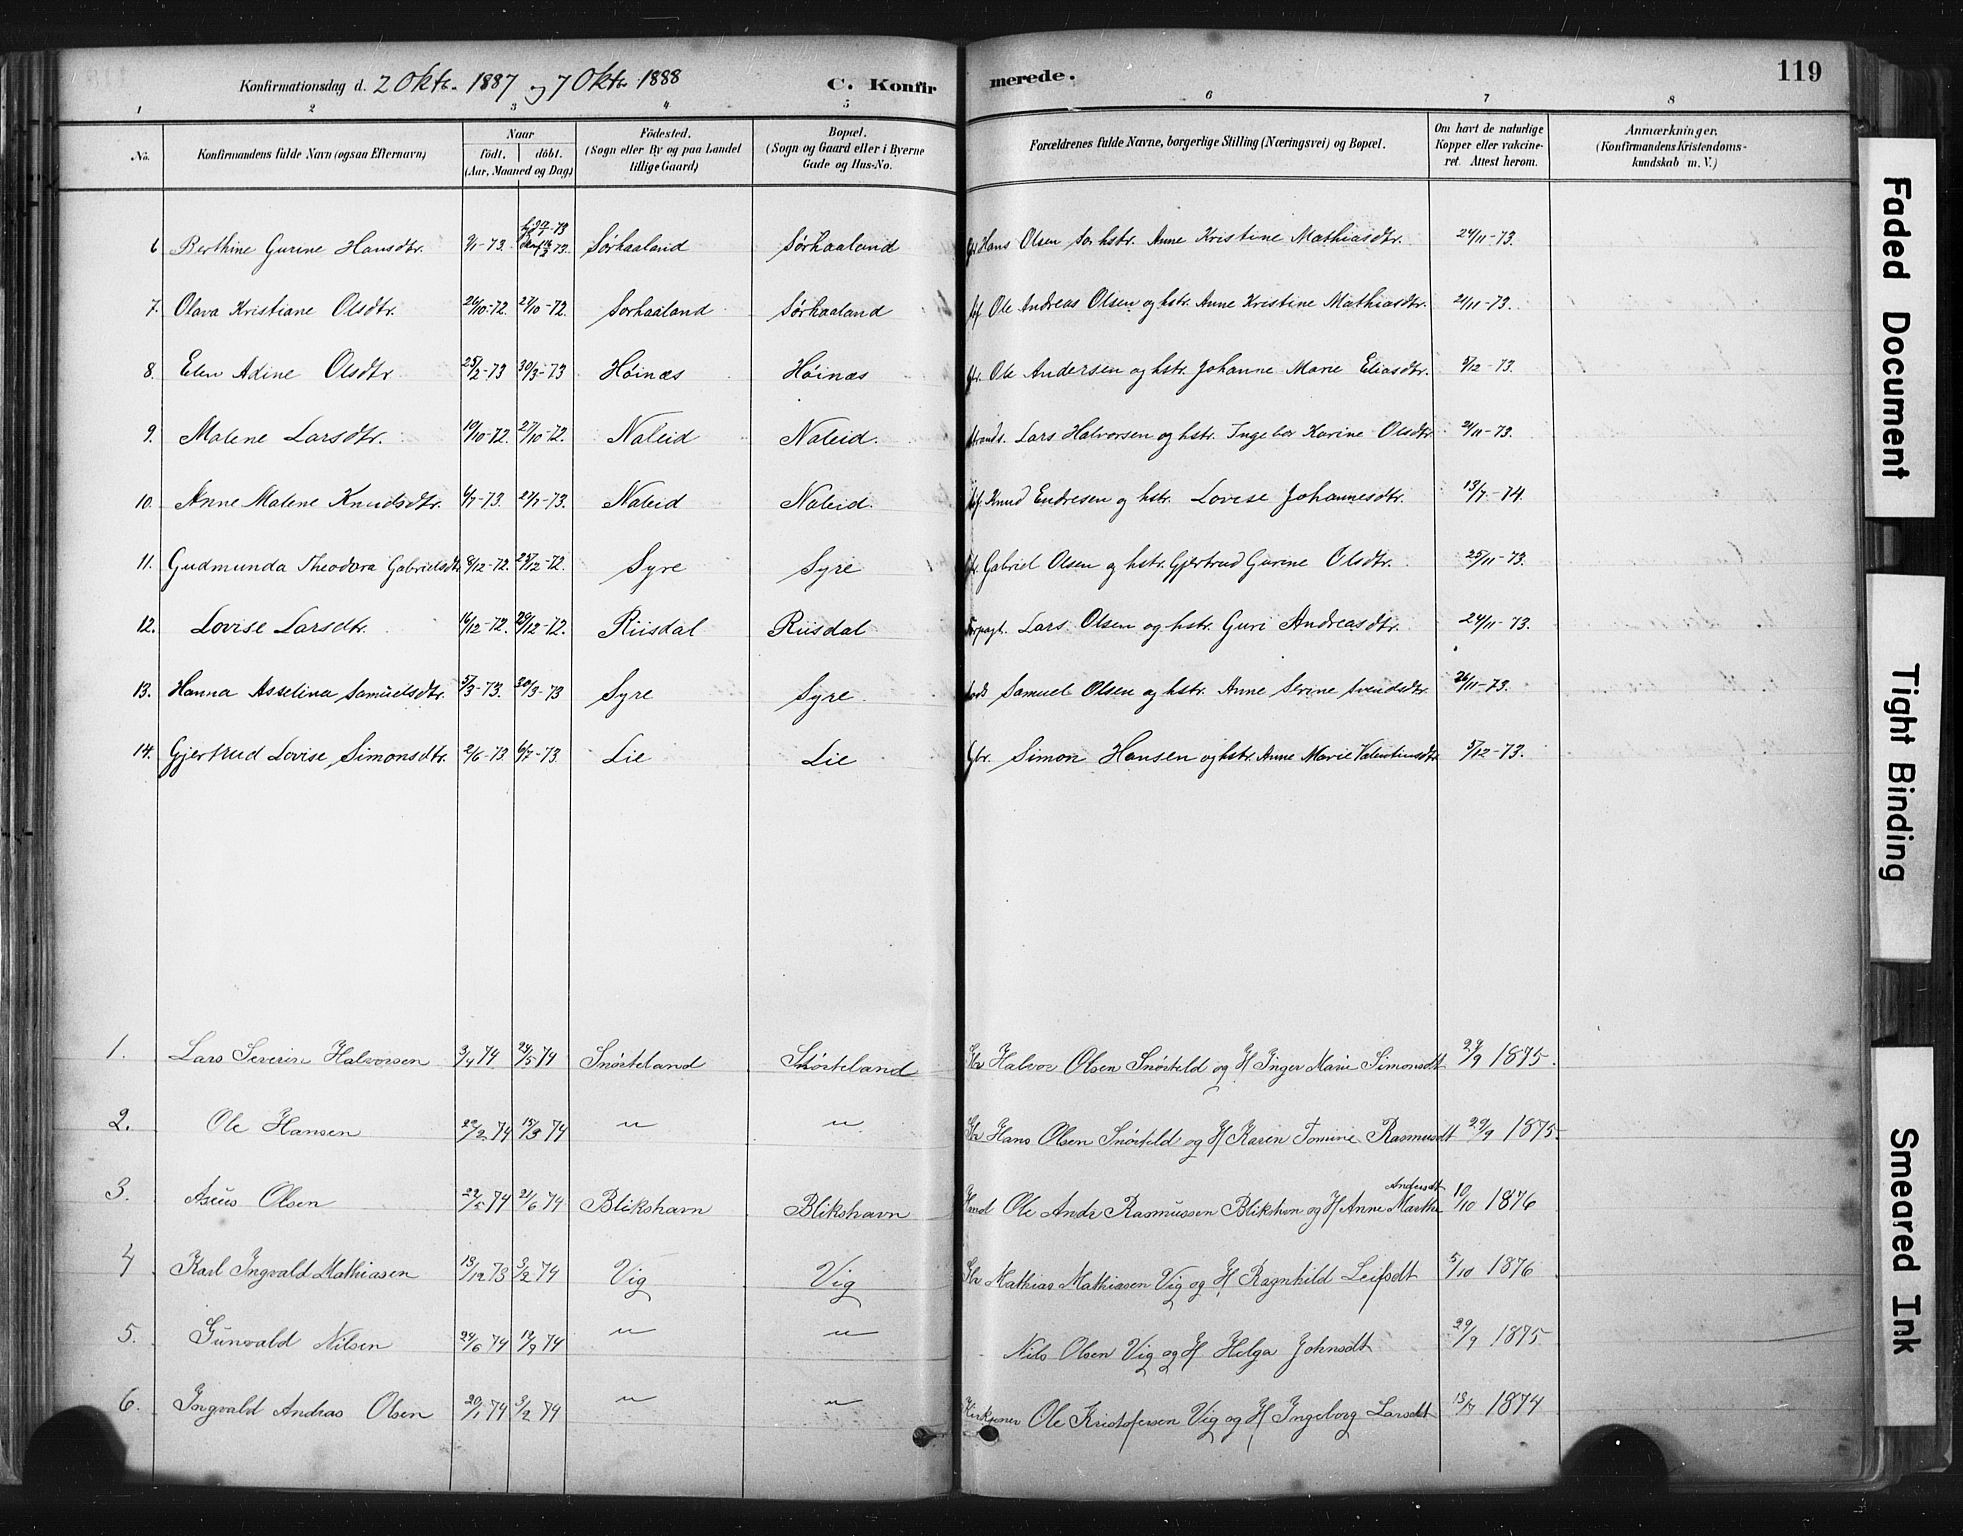 Konfirmationsdag d. 2 Oktr. 1887 og 7 Oktr 1888 C. Konfirmerede. 119
1 2 3 4 5 6 7 8
No. Konfirmandens fulde Navn (ogsaa Efternavn) Naar födt. döbt. (Aar, Maaned og Dag) Födested. (Sogn eller By og paa Landet tillige Gaard) Bopæl. (Sogn og Gaard eller i Byerne Gade og Hus-No. Forældrenes fulde Navne, borgerlige Stilling (Næringsvei) og Bopæl. Om havt de naturlige Kopper eller vakcineret. Attest herom. Anmærkninger. (Konfirmandens Kristendomskundskab m. V.)
6 Berthine Gurine Hansdtr. 9/1-73. Sørhaaland Sørhaaland Hans Olsen Sør hstr. Anne Kristine Mathiasdtr. 24/11-73.
7. Olava Kristiane Olsdtr. 20/10-72. 27/10-72. Sørhaaland Sørhaaland Ole Andreas Olsen og hstr. Anne Kristine Mathiasdtr. 21/11-73.
8. Elen Adine Olsdtr. 25/2-73 30/3-73 Høinæs Høinæs Ole Andersen og hstr. Johanne Marie Eliasdtr. 5/12-73.
9. Malene Larsdtr. 10/10-72. 27/10-72. Naleid Naleid. Strands. Lars Halvorsen og hstr. Ingebor Karine Olsdtr 21/11-73.
10. Anne Malene Knudsdtr. 6/7-73. 27/7-73. Naleid Naleid. Knud Endresen og hstr. Lovise Johannesdtr. 13/7-74.
11. Gudmunda Theodora Gabrielsdtr 8/12-72. 25/12-72. Syre Syre Gabriel Olsen og hstr. Gjertrud Gurine Olsdtr. 25/11-73.
12. Lovise Larsdtr. 16/12-72. 29/12-72. Riisdal Riisdal Forpagt. Lars Olsen og hstr. Guri Andreasdtr. 24/11-73.
13. Hanna Asseline Samuelsdtr. 5/3-73. 30/3-73 Syre Syre. Samuel Olsen og hstr. Anne Serine Svendsdtr. 26/11-73.
14. Gjertrud Lovise Simonsdtr. 2/6-73. 6/7-73. Lie Lie Gbr. Simon Hansen og hstr. Anne Marie Valentinsdtr 5/12-73.
1. Lars Severin Halvorsen 3/4 74 24/5 74 Snørteland Snørteland Gbr Halvor Olsen Snørteld og H Inger Marie Simonsdt 29/9 1875.
2. Ole Hansen 22/2 74 15/3 74 " " Gbr Hans Olsen Snørteld og H Karen Tomine Rasmusdt 29/9 1875.
3. Aseus Olsen 22/5 74 21/6 74 Blikshavn Blikshavn Hmd Ole Andr Rasmussen Blikshvn og H Anne Marthe Andersdt 10/10 1876
4 Karl Ingvald Mathiasen 13/12 73 3/2 74 Vig Vig Gbr Mathias Mathiasen Vig og H Ragnhild Leifsdt 5/10 1876
5. Gunvald Nilsen 24/6 74 12/9 74 " " Nils Olsen Vig og H Helga Johnsdt 29/9 1875
6. Ingvald Andras Olsen 20/1 74 3/2 74 " " Kirktjener Ole Kristofersen Vig og H Ingeborg Larsdt 1874
Faded Document
Tight Binding
Smeared Ink